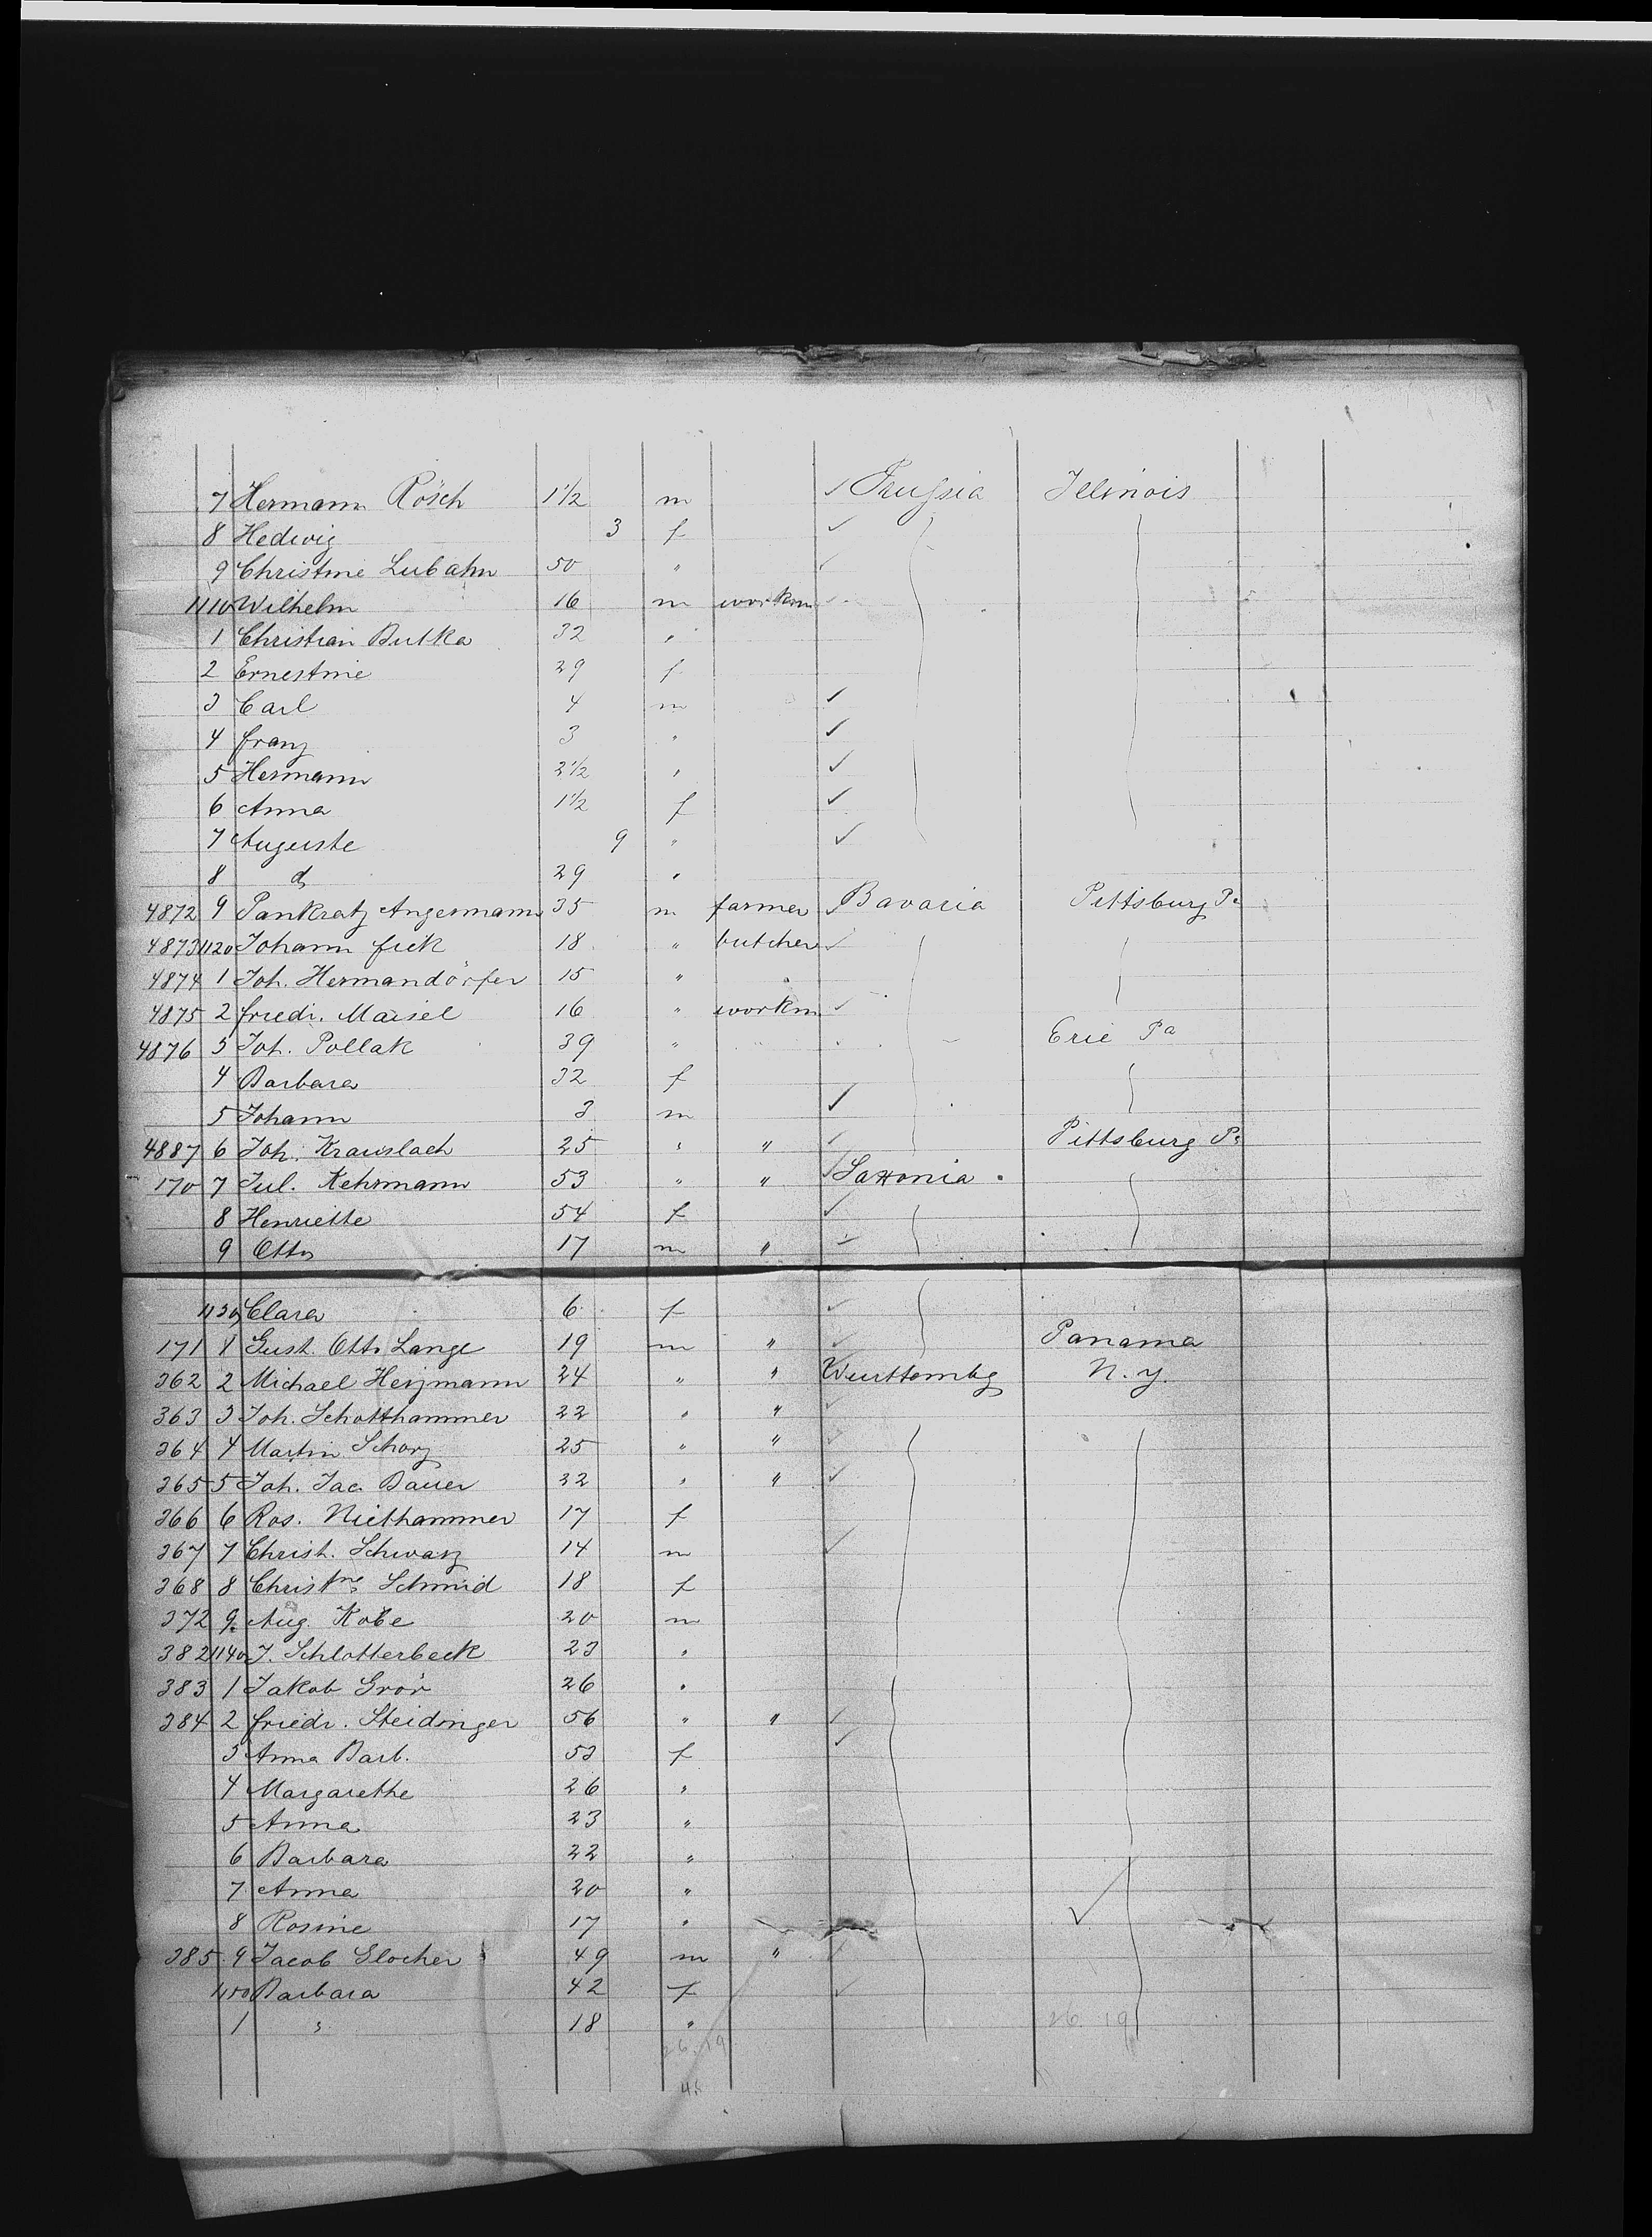 7 Hermann Rösch 1½ m Prussia Illinois
8 Hedwig 3 f
9 Christine Lubahn 50 "
1110 Wilhelm 16 m workm
1 Christian Butka 32 "
2 Ernestine 29 f
3 Carl 4 m
4 Franz 3 "
5 Hermann 2½ "
6 Anna 1½ f
7 Auguste 9 "
8 do 29 "
4872 9 Pankratz Angermann 35 m farmer Bavaria Pittsburg Pa
4873 1120 Johann Fick 18 " butcher
4874 1 Joh. Hermandörfer 15 "
4875 2 Friedr. Maisel 16 " workm
4876 3 Joh. Pollak 39 " " Erie Pa
4 Barbara 32 f
5 Johann 3 m
4887 6 Joh. Krauslach 25 " " Pittsburg Pa
170 7 Jul. Kehrmann 53 " " Saxonia
8 Henriette 54 f
9 Otto 17 m "
1130 Clara 6 f
171 1 Gust. Otto Lange 19 m " Panama
362 2 Michael Herzmann 24 " " Wurttembg N.Y.
363 3 Joh. Schotthammer 22 " "
364 4 Martin Schorz 25 " "
365 5 Joh. Jac. Bauer 32 " "
366 6 Ros. Niethammer 17 f
367 7 Christ. Schwarz 14 m
368 8 Christne Schmid 18 f
372 9 Aug. Kobe 20 m
382 1140 J. Schlotterbeck 23 "
383 1 Jakob Grör 26 "
384 2 Friedr. Steidinger 56 " "
3 Anna Barb. 53 f
4 Margarethe 26 "
5 Anna 23 "
6 Barbara 22 "
7 Anna 20 "
8 Rosine 17 "
385 9 Jacob Glocker 49 m "
1150 Barbara 42 f
1 " 18 "
26. 19 26. 19